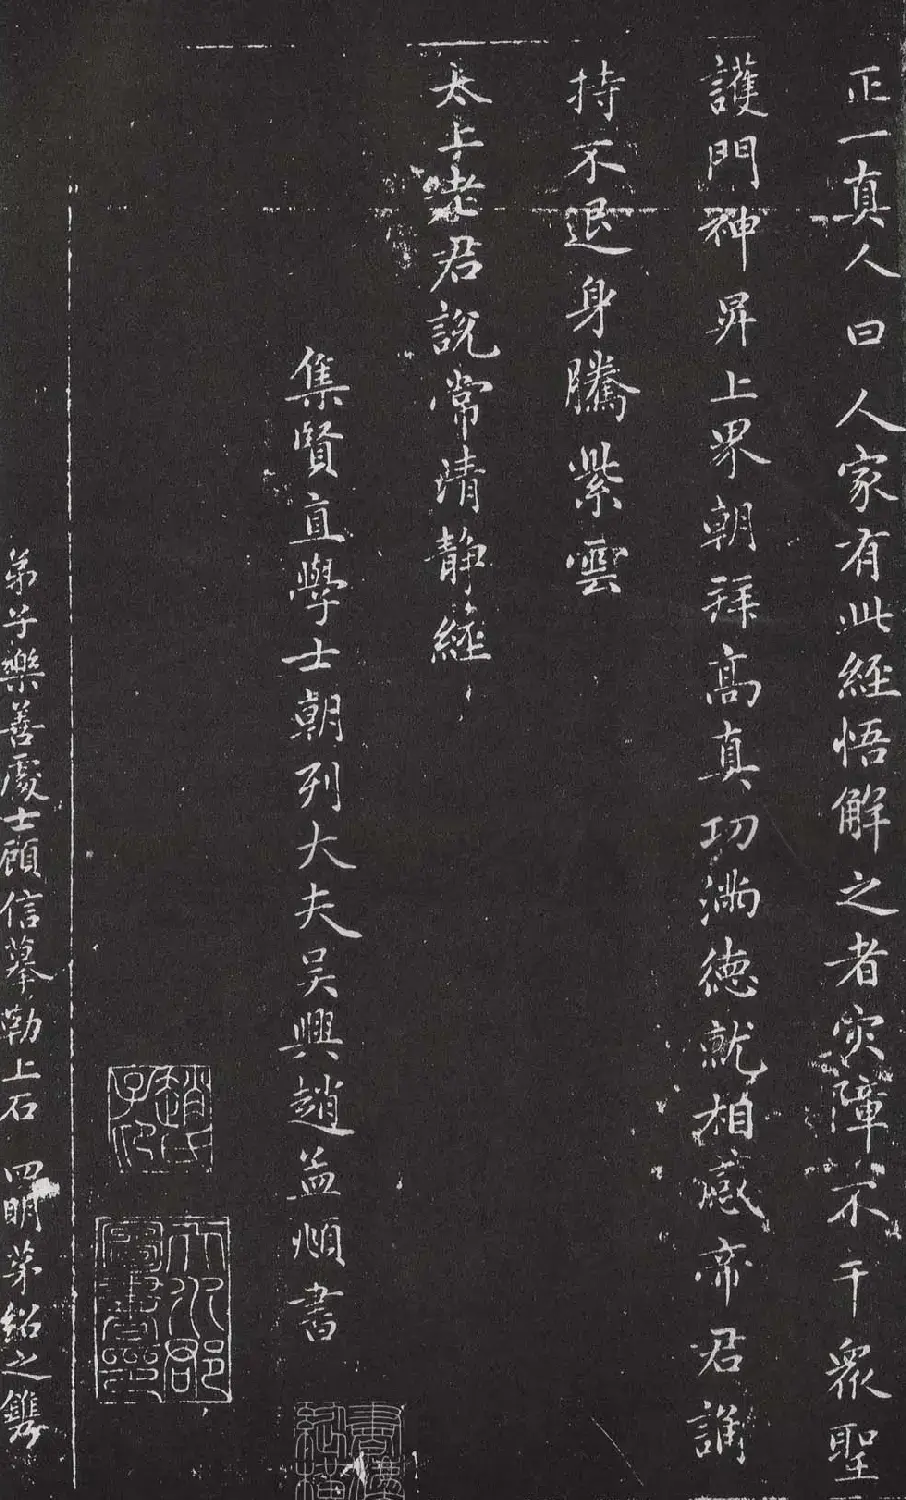 正一真人曰人家有此經悟解之者灾障不干衆聖
護門神昇上界朝拜高真功滿德就相感帝君誦
持不退身騰紫雲
太上老君說常清静經
集賢直學士朝列大夫吳興趙孟頫書
趙氏子昂
弟子樂善處士顧信摹勒上石 四明茅紹之鐫